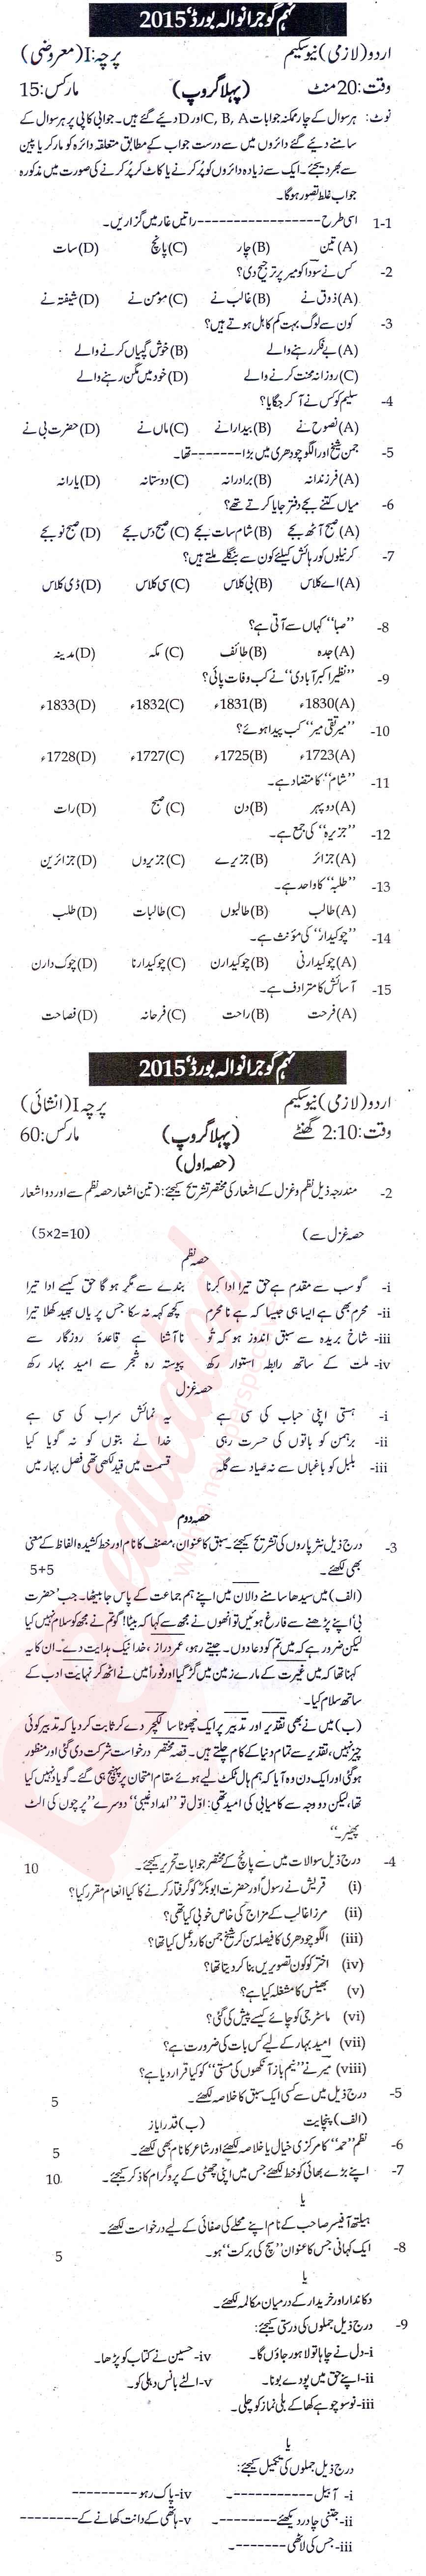 نہم گوجرانوالہ بورڈ، 2015
اردو (لازمی) نیو سکیم پرچہ: I (معروضی)
وقت: 20 منٹ (پہلا گروپ) مارکس: 15
نوٹ: ہر سوال کے چار ممکنہ جوابات C, B, A اور D دیئے گئے ہیں۔ جوابی کاپی پر ہر سوال کے
سامنے دیئے گئے دائروں میں سے درست جواب کے مطابق متعلقہ دائرہ کو مارکر یا پین
سے بھر دیجئے۔ ایک سے زیادہ دائروں کو پُر کرنے یا کاٹ کر پُر کرنے کی صورت میں مذکورہ
جواب غلط تصور ہوگا۔
1-1 اسی طرح ----------------- راتیں غار میں گزاریں۔
(A) تین (B) چار (C) پانچ (D) سات
2- کس نے سودا کو میر پر ترجیح دی؟
(A) ذوق نے (B) غالب نے (C) مومن نے (D) شیفتہ نے
3- کون سے لوگ بہت کم کاہل ہوتے ہیں؟
(A) بے فکر رہنے والے (B) خوش گپیاں کرنے والے
(C) روزانہ محنت کرنے والے (D) خود میں مگن رہنے والے
4- سلیم کو کس نے آ کر جگایا؟
(A) نصوح نے (B) بیدارا نے (C) ماں نے (D) حضرت بی نے
5- جمن شیخ اور الگو چودھری میں بڑا ------- تھا۔
(A) فرزندانہ (B) برادرانہ (C) دوستانہ (D) یارانہ
6- میاں کتنے بجے دفتر جایا کرتے تھے؟
(A) صبح آٹھ بجے (B) شام سات بجے (C) صبح دس بجے (D) صبح نو بجے
7- کرنیلوں کو رہائش کیلئے کون سے بنگلے ملتے ہیں؟
(A) اے کلاس (B) بی کلاس (C) سی کلاس (D) ڈی کلاس
8- ”صبا“ کہاں سے آتی ہے؟
(A) جدہ (B) طائف (C) مکہ (D) مدینہ
9- ”نظیر اکبر آبادی“ نے کب وفات پائی؟
(A) 1830ء (B) 1831ء (C) 1832ء (D) 1833ء
10- ”میر تقی میر“ کب پیدا ہوئے؟
(A) 1723ء (B) 1725ء (C) 1727ء (D) 1728ء
11- ”شام“ کا متضاد ہے۔
(A) دوپہر (B) دن (C) صبح (D) رات
12- ”جزیرہ“ کی جمع ہے۔
(A) جزائر (B) جزیرے (C) جزیروں (D) جزائرین
13- ”طلبہ“ کا واحد ہے۔
(A) طالب (B) طالبوں (C) طالبات (D) طلب
14- ”چوکیدار“ کی مؤنث ہے۔
(A) چوکیدارنی (B) چوکیدارن (C) چوکیدارنا (D) چوک دارن
15- آسائش کا مترادف ہے۔
(A) فرحت (B) راحت (C) فرحانہ (D) فصاحت
نہم گوجرانوالہ بورڈ، 2015
اردو (لازمی) نیو سکیم پرچہ I (انشائی)
وقت: 2:10 گھنٹے (پہلا گروپ) مارکس: 60
(حصہ اول)
2- مندرجہ ذیل نظم و غزل کے اشعار کی مختصر تشریح کیجئے: (تین اشعار حصہ نظم سے اور دو اشعار
حصہ غزل سے) (5×2=10)
حصہ نظم
i- گو سب سے مقدم ہے حق تیرا ادا کرنا بندے سے مگر ہو گا حق کیسے ادا تیرا
ii- محرم بھی ہے ایسا ہی جیسا کہ ہے نا محرم کچھ کہہ نہ سکا جس پر یاں بھید کھلا تیرا
iii- شاخ بریدہ سے سبق اندوز ہو کہ تو ناآشنا ہے قاعدۂ روزگار سے
iv- ملت کے ساتھ رابطہ استوار رکھ پیوستہ رہ شجر سے امید بہار رکھ
حصہ غزل
i- ہستی اپنی حباب کی سی ہے یہ نمائش سراب کی سی ہے
ii- برہمن کو باتوں کی حسرت رہی خدا نے بتوں کو نہ گویا کیا
iii- بلبل کو باغباں سے نہ صیاد سے گلہ قسمت میں قید لکھی تھی فصل بہار میں
حصہ دوم
3- درج ذیل نثر پاروں کی تشریح کیجئے۔ سبق کا عنوان، مصنف کا نام اور خط کشیدہ الفاظ کے معنی
بھی لکھئے۔ 5+5
(الف) میں سیدھا سامنے دالان میں اپنے ہم جماعت کے پاس جا بیٹھا۔ جب ’حضرت
بی‘ اپنے پڑھنے سے فارغ ہوئیں تو انھوں نے مجھ سے کہا کہ بیٹا! گو تم نے مجھ کو سلام نہیں کیا
لیکن ضرور ہے کہ میں تم کو دعا دوں۔ جیتے رہو، عمر دراز، خدا نیک ہدایت دے۔ ان کا یہ
کہنا تھا کہ میں غیرت کے مارے زمین میں گڑ گیا اور فوراً میں نے اٹھ کر نہایت ادب کے
ساتھ سلام کیا۔
(ب) میں نے بھی تقدیر اور تدبیر پر ایک چھوٹا سا لکچر دے کر ثابت کر دیا کہ تدبیر کوئی
چیز نہیں، تقدیر سے تمام دنیا کے کام چلتے ہیں۔ قصہ مختصر درخواست شرکت دی گئی اور منظور
ہو گئی اور ایک دن وہ آیا کہ ہم ہال ٹکٹ لیے ہوئے مقام امتحان پر پہنچ ہی گئے۔ گو یاد نہیں کیا
تھا، لیکن دو وجہ سے کامیابی کی امید تھی: اوّل تو ”امداد غیبی“ دوسرے ”پرچوں کی الٹ
پھیر۔“
4- درج ذیل سوالات میں سے پانچ کے مختصر جوابات تحریر کیجئے۔ 10
(i) قریش نے رسولؐ اور حضرت ابوبکرؓ کو گرفتار کرنے کا کیا انعام مقرر کیا؟
(ii) مرزا غالب کے مزاج کی خاص خوبی کیا تھی؟
(iii) الگو چودھری کا فیصلہ سن کر شیخ جمن کا رد عمل کیا تھا؟
(iv) اختر کو کون تصویریں بنا کر دیتا تھا؟
(v) بھینس کا مشغلہ کیا ہے؟
(vi) ماسٹر جی کو چائے کیسے پیش کی گئی؟
(vii) امید بہار کے لیے کس بات کی ضرورت ہے؟
(viii) میر نے ”نیم باز آنکھوں کی مستی“ کو کیا قرار دیا ہے؟
5- درج ذیل میں سے کسی ایک سبق کا خلاصہ لکھئے۔ 5
(الف) پنچایت (ب) قدر ایاز
6- نظم ”حمد“ کا مرکزی خیال یا خلاصہ لکھئے اور شاعر کا نام بھی لکھئے۔ 5
7- اپنے بڑے بھائی کو خط لکھئے جس میں اپنی چھٹی کے پروگرام کا ذکر کیجئے۔ 10
یا
ہیلتھ آفیسر صاحب کے نام اپنے محلے کی صفائی کے لیے درخواست لکھئے۔
8- ایک کہانی جس کا عنوان ”سچ کی برکت“ ہو۔ 5
یا
دکاندار اور خریدار کے درمیان مکالمہ لکھئے۔
9- درج ذیل جملوں کی درستی کیجئے:
i- دل نے چاہا تو لاہور جاؤں گا۔ iv- حسین نے کتاب کو پڑھا۔
ii- اپنے حق میں پودے بونا۔ v- الٹے بانس دہلی کو۔
iii- نو سو چوہے کھا کے بلی نماز کو چلی۔
یا
درج ذیل جملوں کی تکمیل کیجئے:
i- آ بیل -----------۔ iv- پاک رہو ---------
ii- جتنی چادر دیکھئے --------۔ v- ہاتھی کے دانت کھانے کے --------
iii- جس کی لاٹھی -------۔